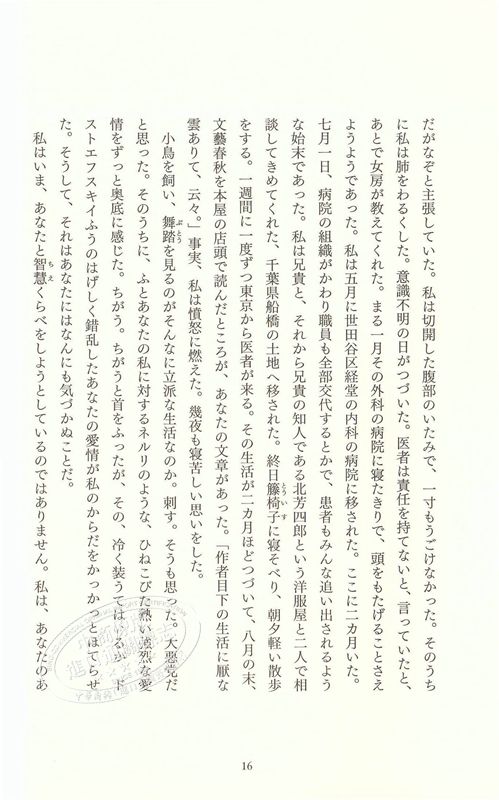 だがなぞと主張していた。私は切開した腹部のいたみで、一寸もうごけなかった。そのうち
に私は肺をわるくした。意識不明の日がつづいた。医者は責任を持てないと、言っていたと、
あとで女房が教えてくれた。まる一月その外科の病院に寝たきりで、頭をもたげることさえ
ようようであった。私は五月に世田谷区経堂の内科の病院に移された。ここに二カ月いた。
七月一日、病院の組織がかわり職員も全部交代するとかで、患者もみんな追い出されるよう
な始末であった。私は兄貴と、それから兄貴の知人である北芳四郎という洋服屋と二人で相
談してきめてくれた、千葉県船橋の土地へ移された。終日籐椅子に寝そべり、朝夕軽い散歩
とういす
をする。一週間に一度ずつ東京から医者が来る。その生活が二カ月ほどつづいて、八月の末、
文藝春秋を本屋の店頭で読んだところが、あなたの文章があった。「作者目下の生活に厭な
雲ありて、云々。」事実、私は憤怒に燃えた。幾夜も寝苦しい思いをした。
小鳥を飼い、舞踏を見るのがそんなに立派な生活なのか。刺す。そうも思った。大悪党だ
ぶとう
と思った。そのうちに、ふとあなたの私に対するネルリのような、ひねこびた熱い強烈な愛
情をずっと奥底に感じた。ちがう。ちがうと首をふったが、その、冷く装うてはいるが、ド
ストエフスキイふうのはげしく錯乱したあなたの愛情が私のからだをかっかっとほてらせ
た。そうして、それはあなたにはなんにも気づかぬことだ。
私はいま、あなたと智慧くらべをしようとしているのではありません。私は、あなたのあ
ちえ
16